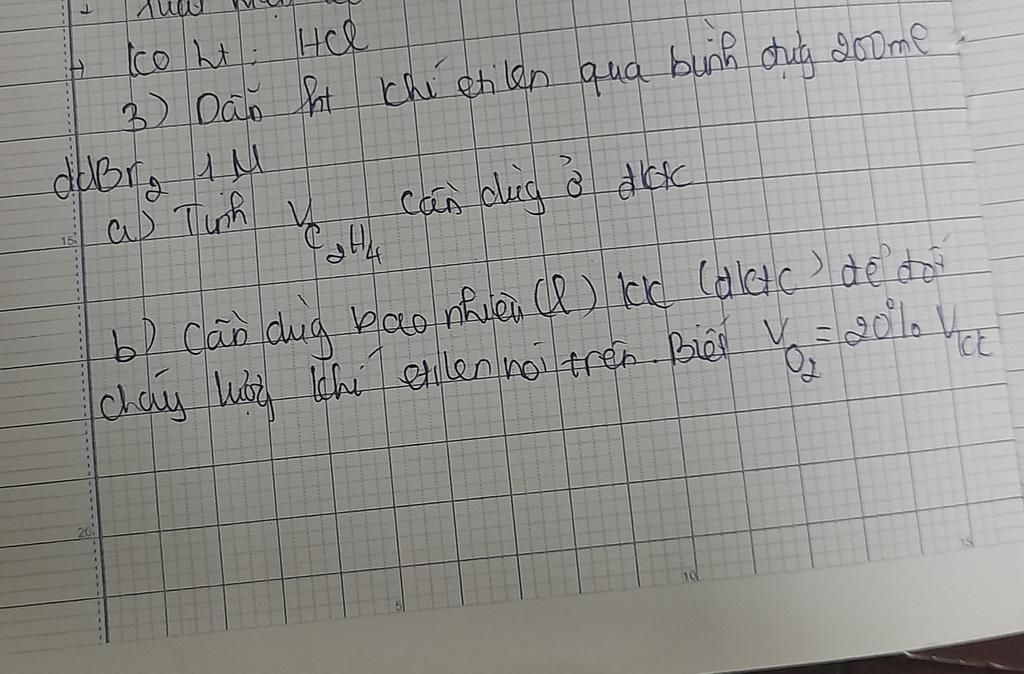 có ht: HCl
3) Dẫn ht khí etilen qua bình đựg 200ml
ddBr2 1M
a) Tính VC2H4 cần dùg ở đktc
b) Cần dùg bao nhiêu (l) kk (đktc) để đốt
cháy lượg khí etilen nói trên. Biết VO2 = 20% Vkk
15
20
5
10
15